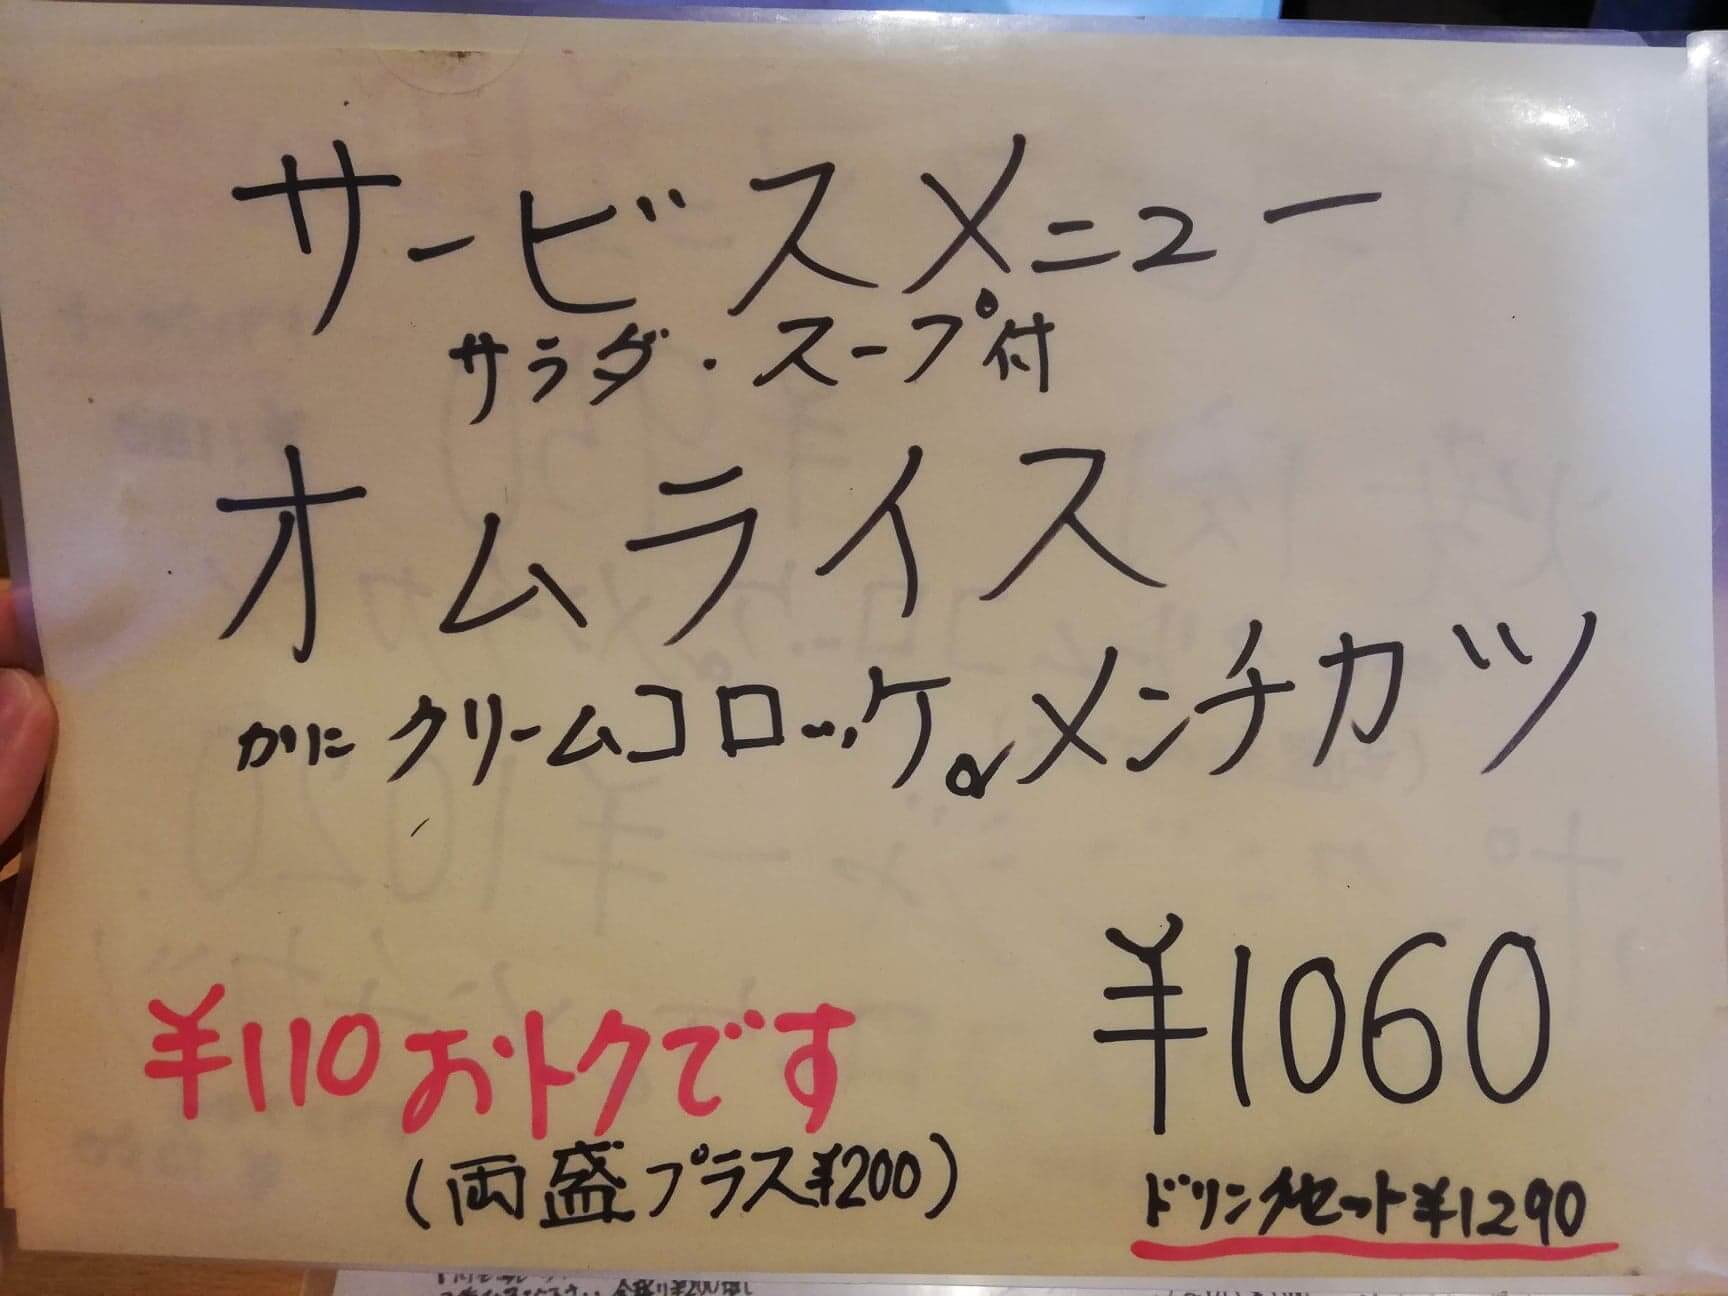 サービスメニュー
サラダ・スープ付
オムライス
かにクリームコロッケorメンチカツ
¥1060
¥110おトクです
(両盛プラス¥200)
ドリンクセット¥1290